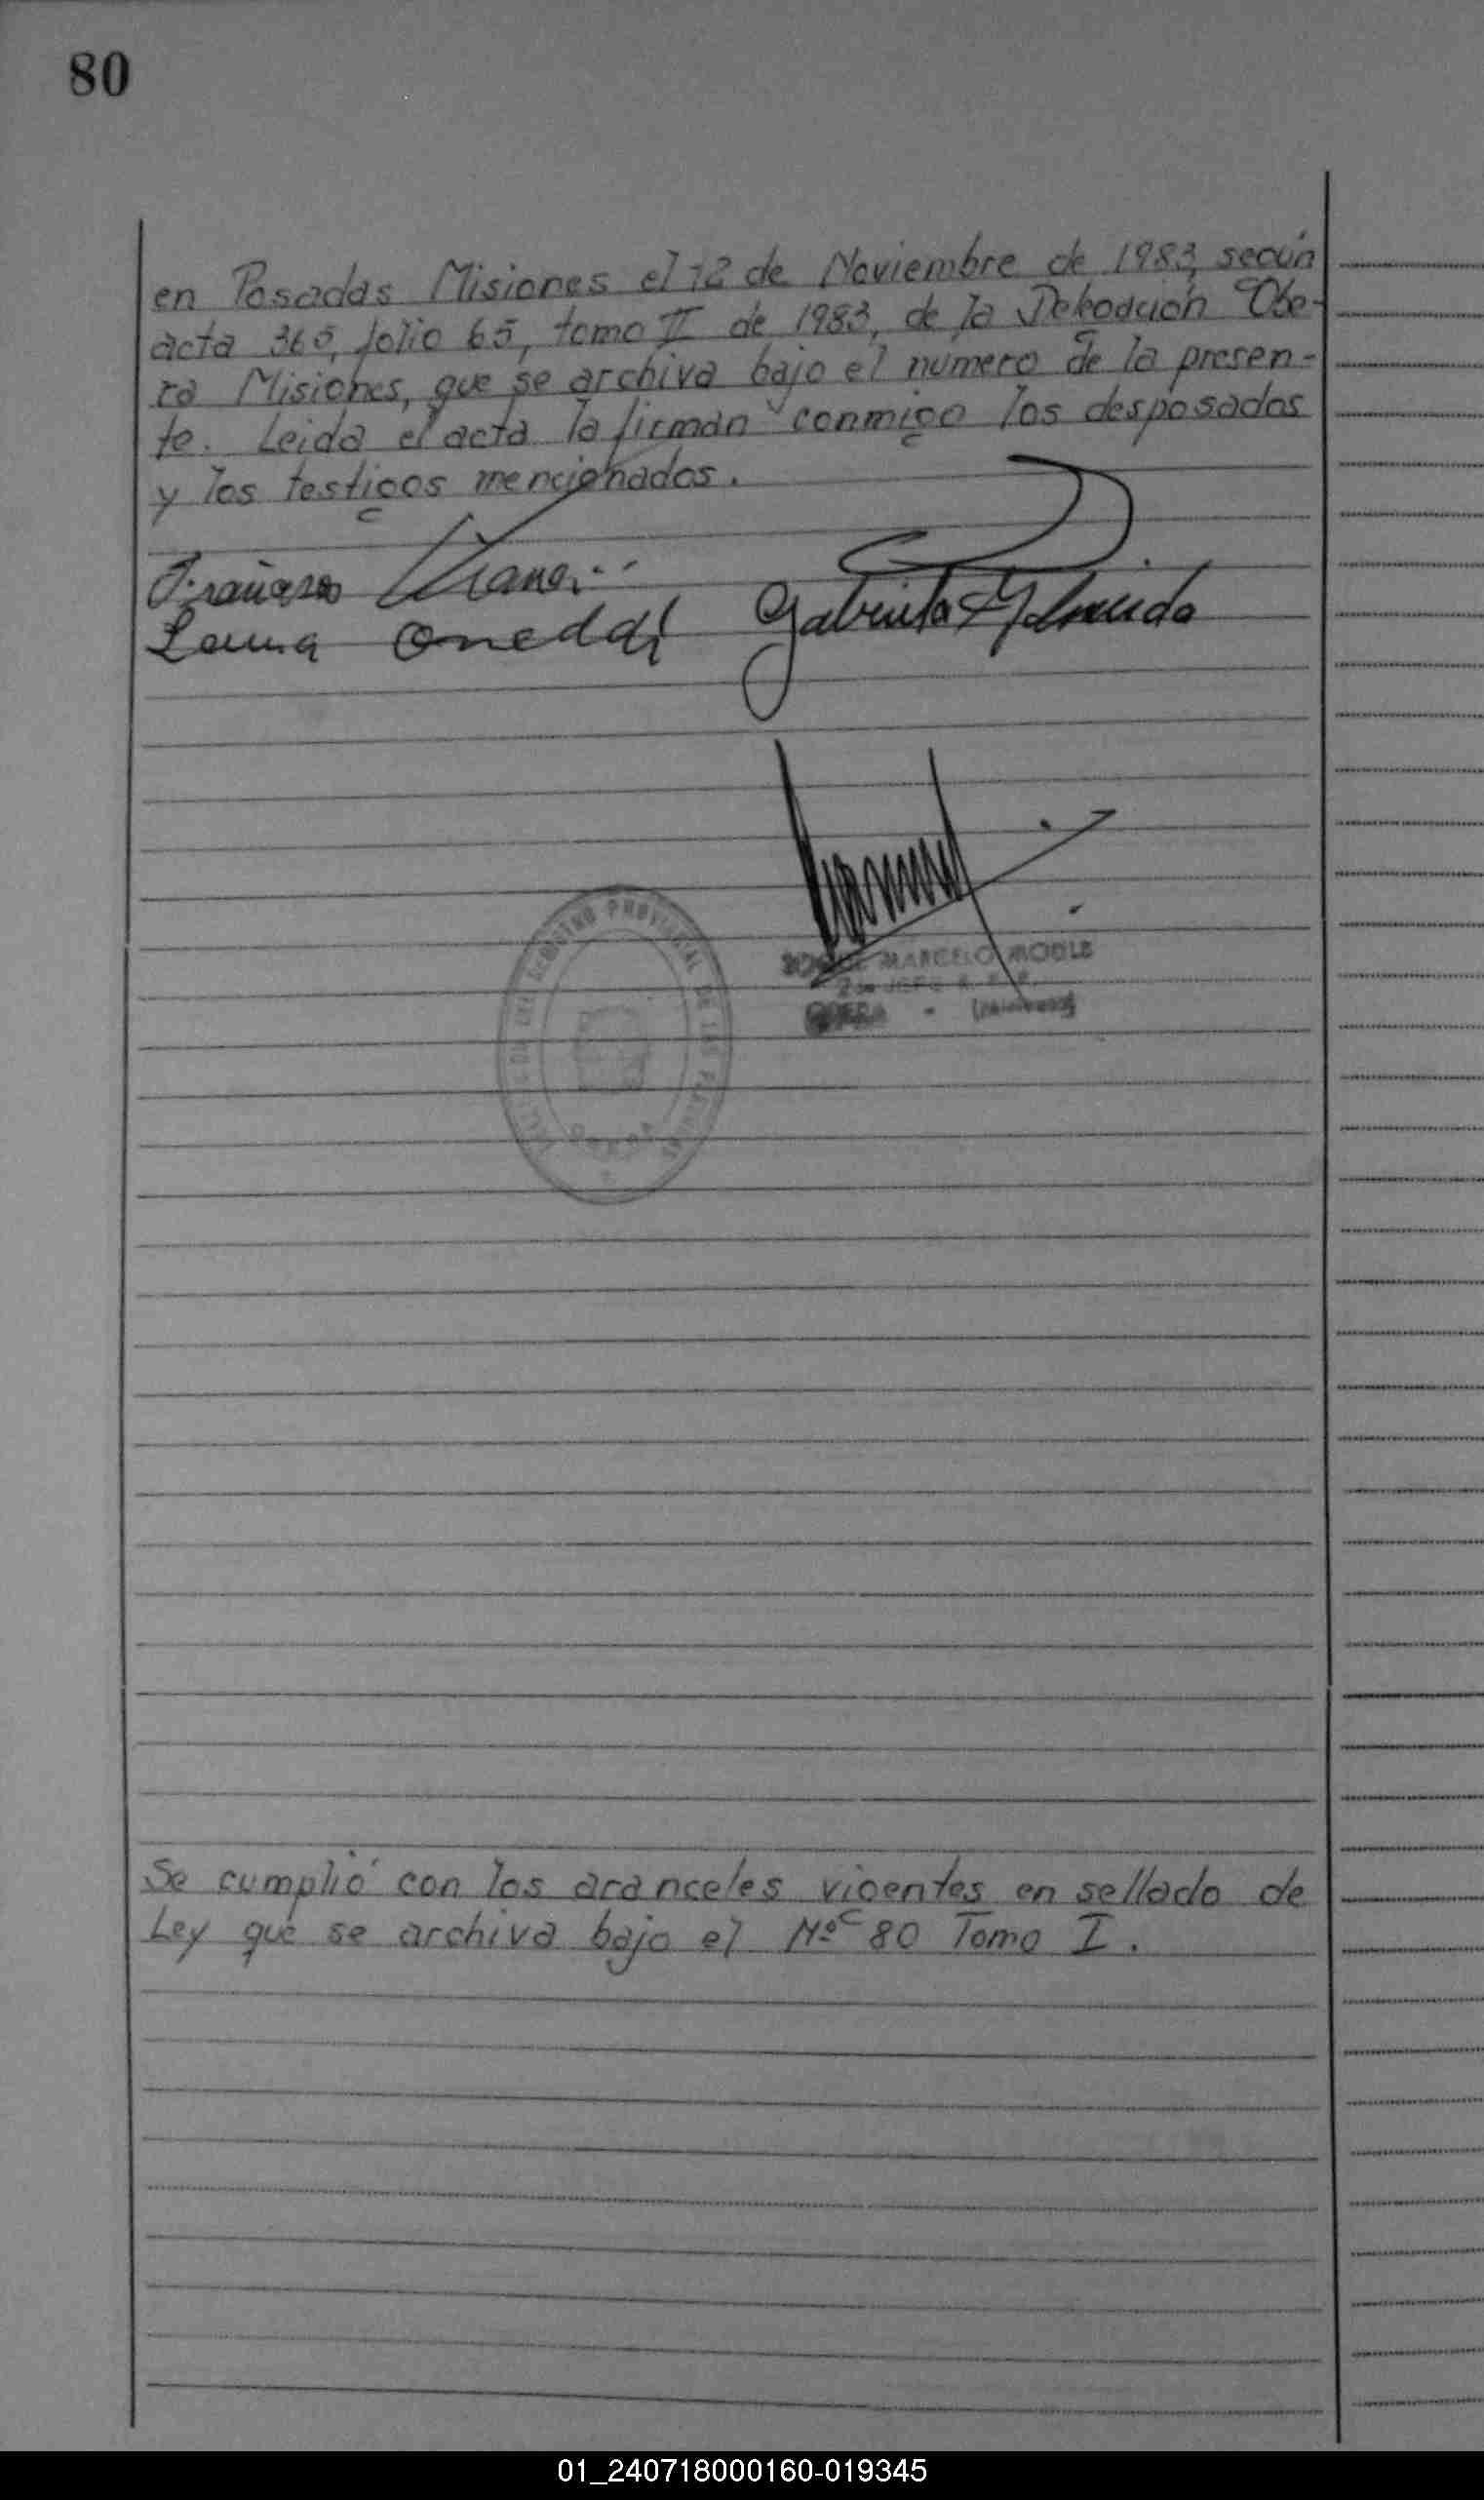 80
en Posadas Misiones el 12 de Noviembre de 1983, según
acta 365, folio 65, tomo II de 1983, de la Delegación Obe-
ra Misiones, que se archiva bajo el número de la presen-
te. Leida el acta la firman conmigo los desposados
y los testigos mencionados.
Laura
Gabriela
REGISTRO PROVINCIAL DE LAS PERSONAS
OBERA
MARCELO
2do JEFE R. P. P.
OBERA - (Misiones)
Se cumplió con los aranceles vigentes en sellado de
Ley que se archiva bajo el Nº 80 Tomo I.
01_240718000160-019345